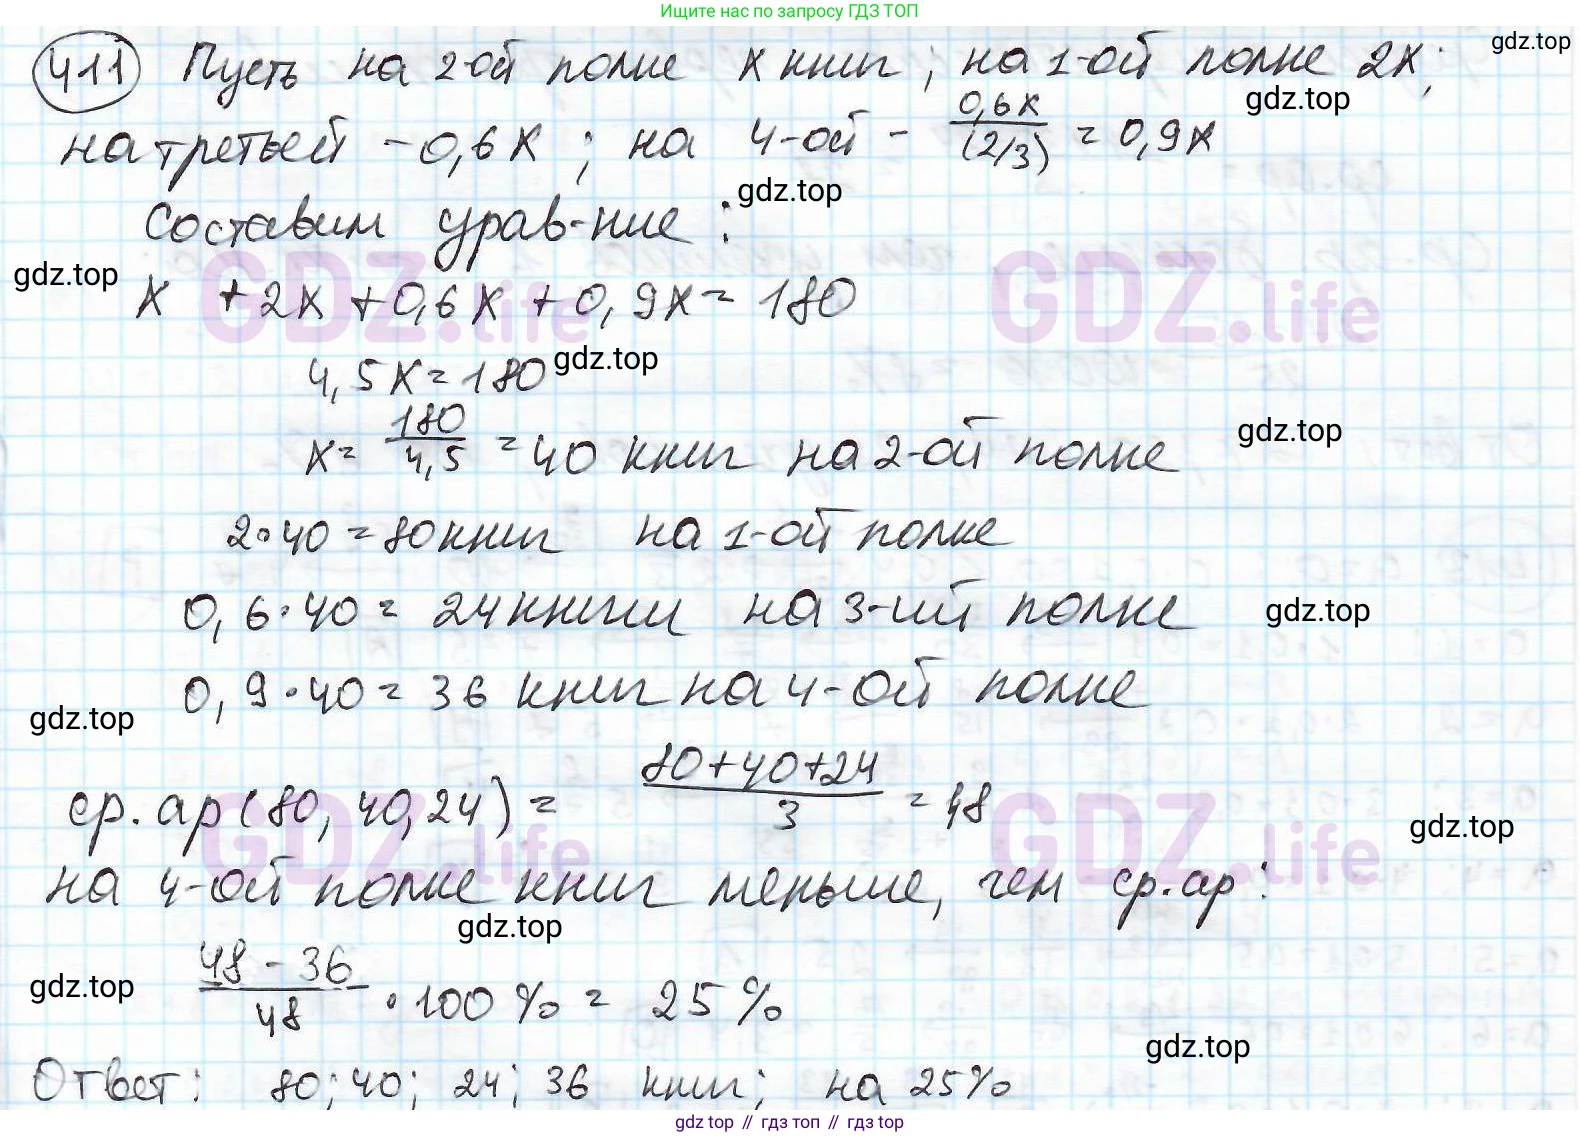 Ищите нас по запросу ГДЗ ТОП
411 Пусть на 2-ой полке x книг; на 1-ой полке 2x;
gdz.top
gdz.top
на третьей - 0,6x; на 4-ой - 0,6x/(2/3) = 0,9x
gdz.top
Составим урав-ние:
gdz.top
GDZ.life GDZ.life
x + 2x + 0,6x + 0,9x = 180
4,5x = 180
gdz.top
x = 180/4,5 = 40 книг на 2-ой полке
gdz.top
2·40 = 80 книг на 1-ой полке
0,6·40 = 24 книги на 3-ий полке
gdz.top
0,9·40 = 36 книг на 4-ой полке
gdz.top
ср.ар (80, 40, 24) = (80+40+24)/3 = 48
gdz.top
GDZ.life GDZ.life
на 4-ой полке книг меньше, чем ср.ар:
gdz.top
(48 - 36)/48 · 100% = 25%
gdz.top
gdz.top
Ответ: 80; 40; 24; 36 книг; на 25%
gdz top // гдз топ // gdz top